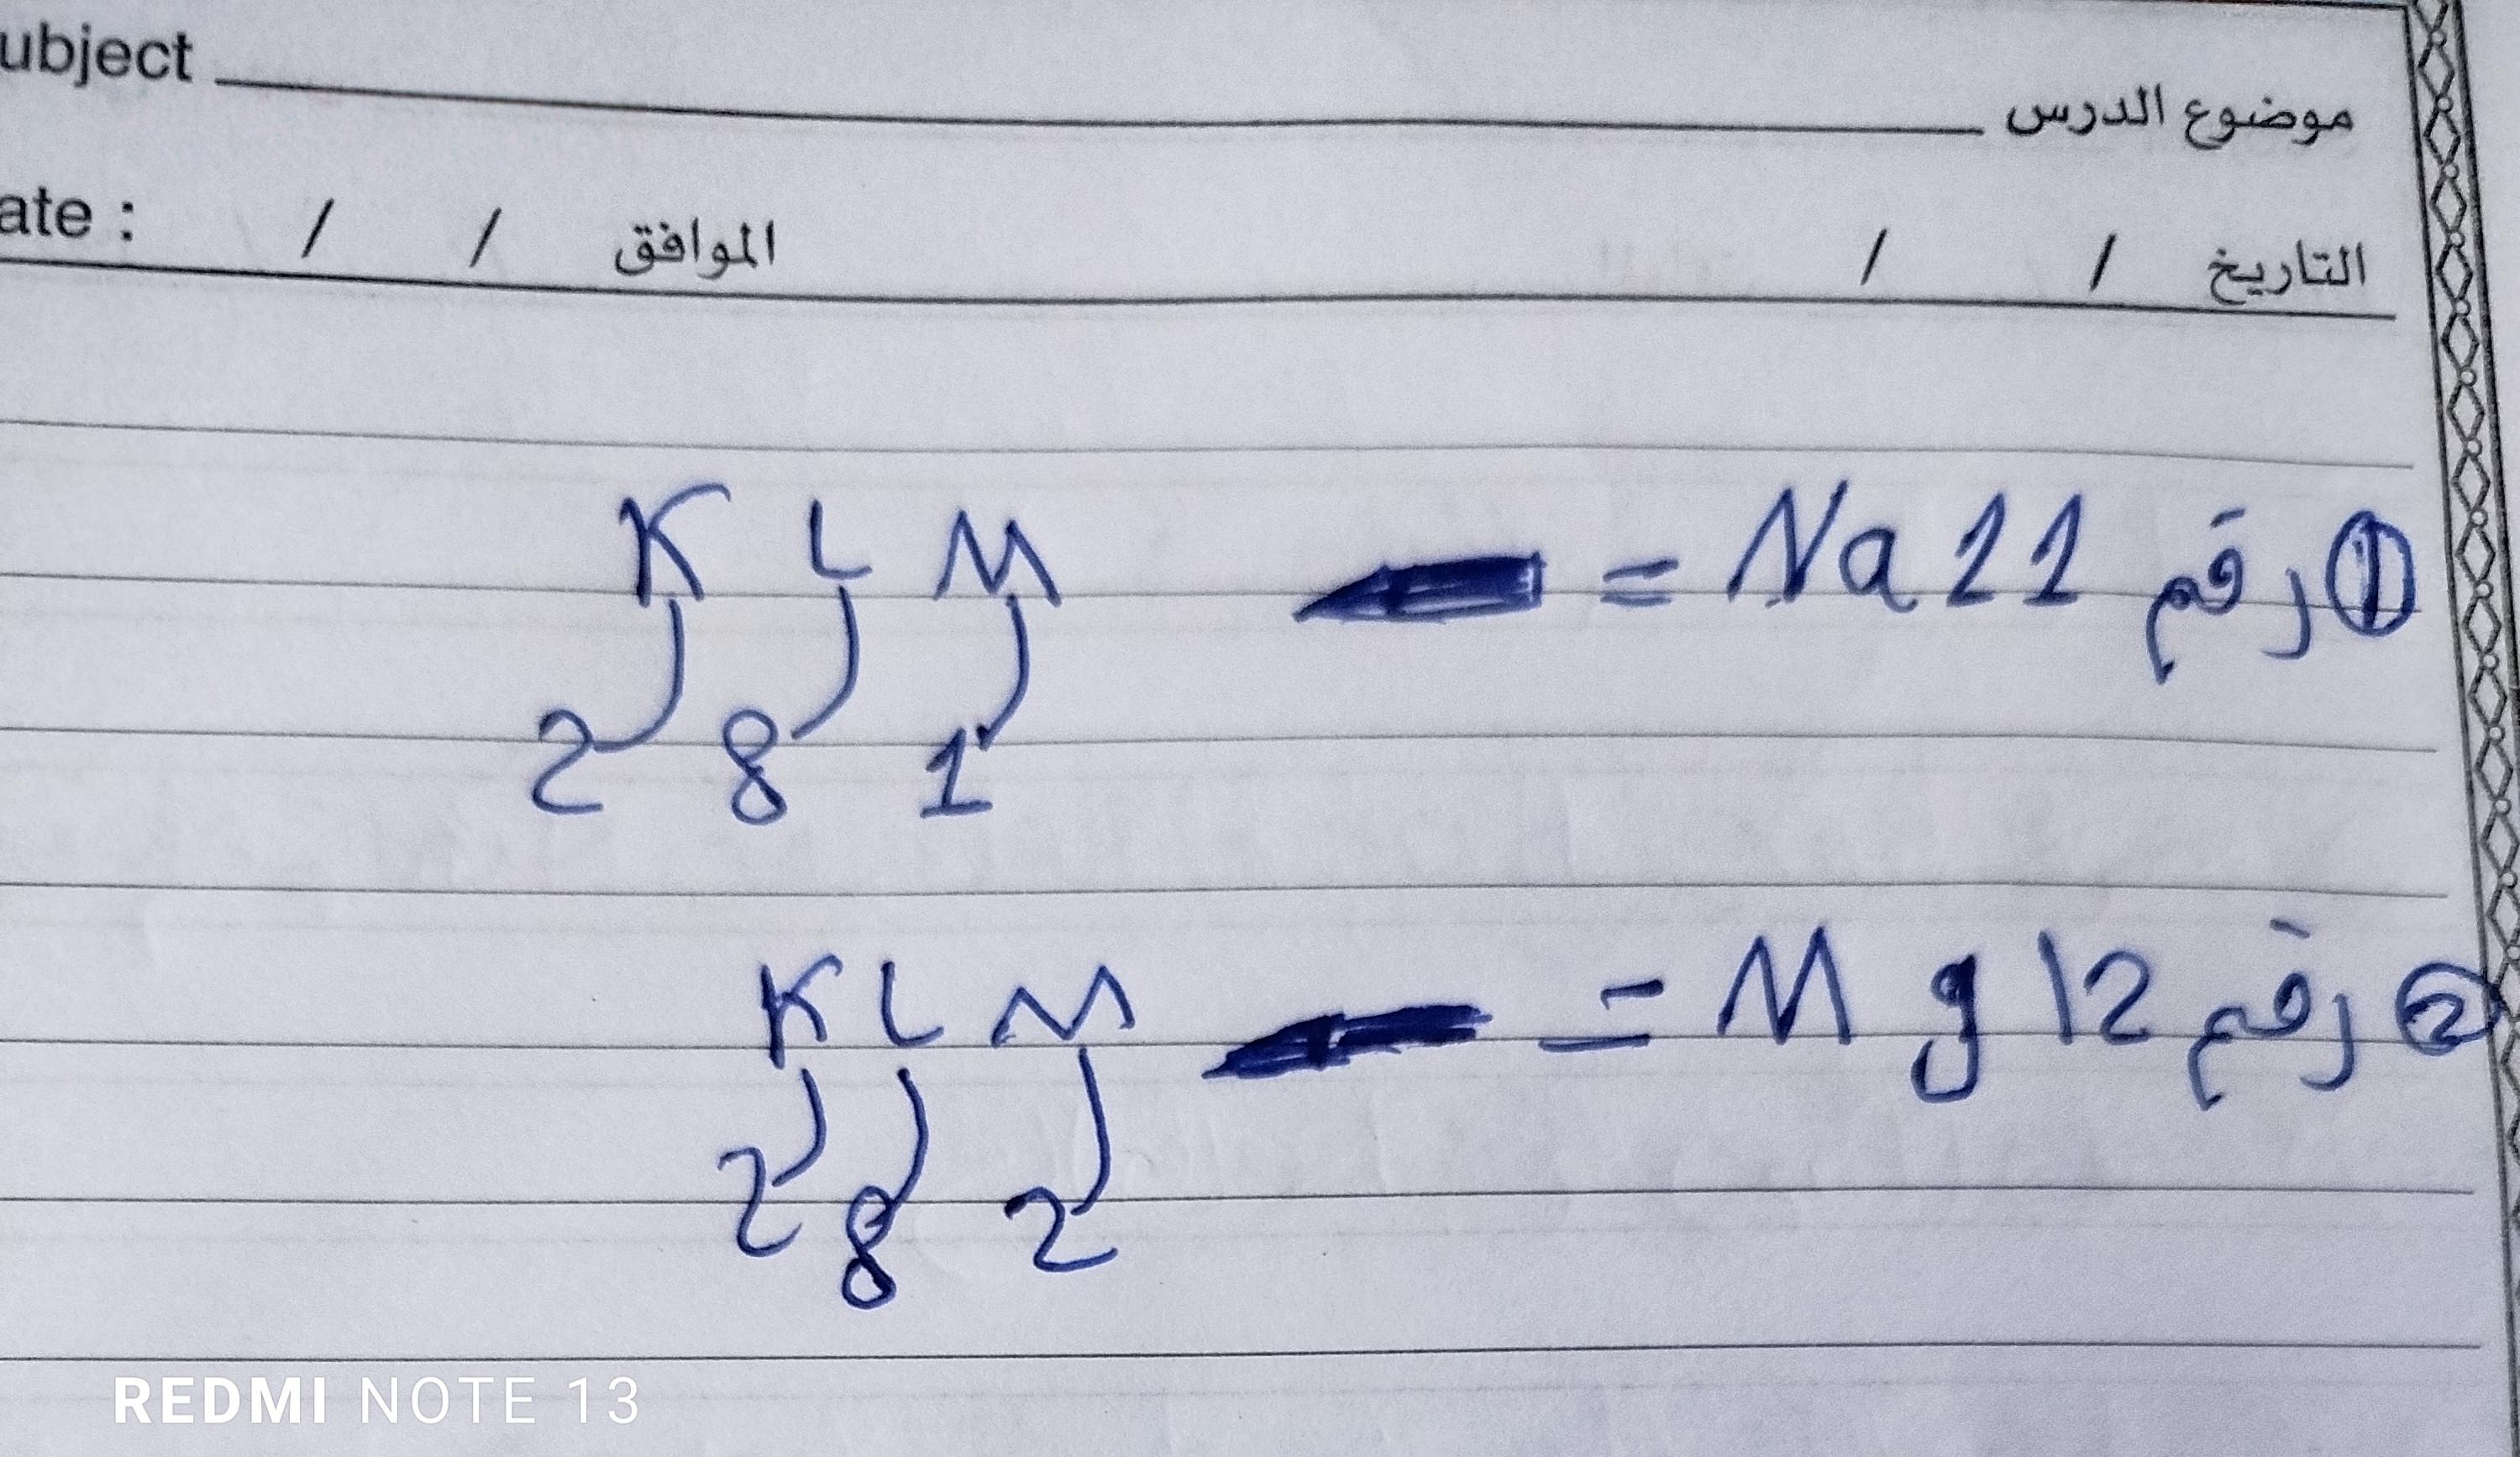 ubject موضوع الدرس
ate : / / الموافق / / التاريخ
① رقم Na 11 = K L M
2 8 1
② رقم Mg 12 = K L M
2 8 2
REDMI NOTE 13